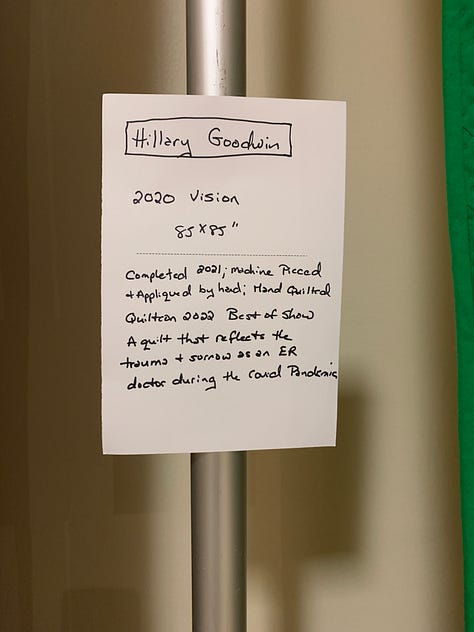 Hillary Goodwin
2020 Vision
85 x 85"
Completed 2021; machine Pieced
+ Appliqued by hand; Hand Quilted
Quiltcon 2022 Best of Show
A quilt that reflects the
trauma + sorrow as an ER
doctor during the covid Pandemic